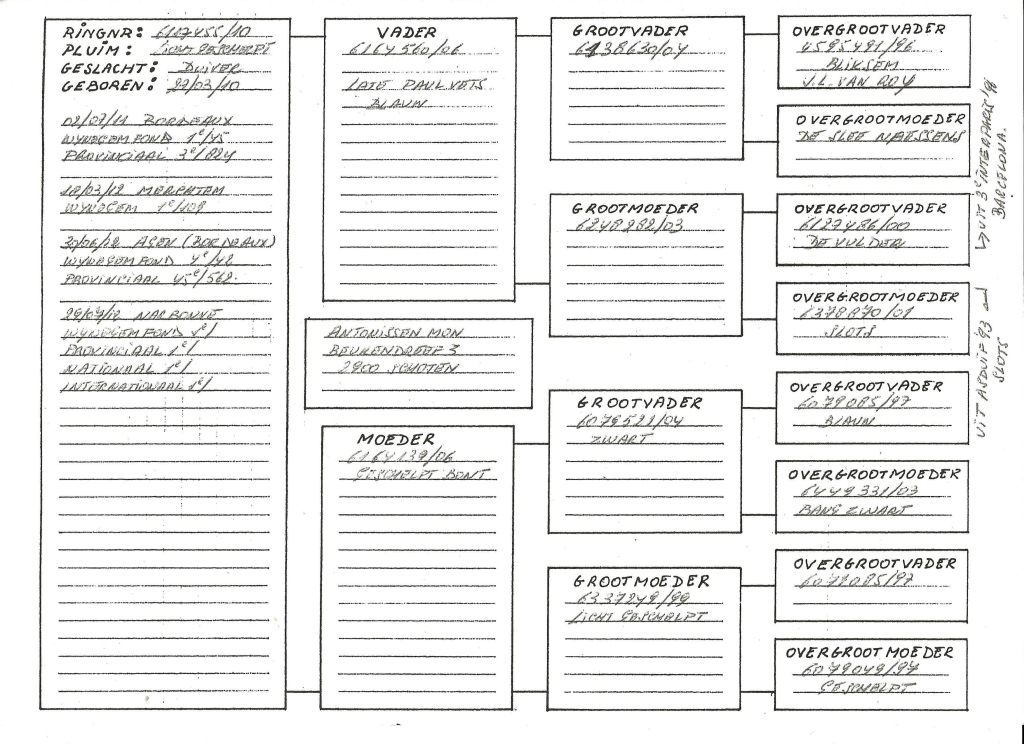 RINGNR: 6117455/10
PLUIM: LICHT GESCHELPT
GESLACHT: DUIVER
GEBOREN: 22/03/10
02/07/11 BORDEAUX
WYNEGEM FOND 1e/45
PROVINCIAAL 3e/824
18/03/12 MERCHTEM
WYNEGEM 1e/109
30/06/12 AGEN (BORDEAUX)
WYNEGEM FOND 4e/42
PROVINCIAAL 45e/562
29/07/12 NARBONNE
WYNEGEM FOND 1e/
PROVINCIAAL 1e/
NATIONAAL 1e/
INTERNATIONAAL 1e/
VADER
6164560/06
LATE PAUL VETS
BLAUW
ANTONISSEN MON
BEUKENDREEF 3
2900 SCHOTEN
MOEDER
6164139/06
GESCHELPT BONT
GROOTVADER
6438630/04
GROOTMOEDER
6248282/03
GROOTVADER
6079521/04
ZWART
GROOTMOEDER
6337249/99
LICHT GESCHELPT
OVERGROOTVADER
4595491/96
BLIKSEM
J.L. VAN ROY
OVERGROOTMOEDER
DE SLEE NAESSENS
OVERGROOTVADER
6127486/00
DE VULDER
OVERGROOTMOEDER
1378870/01
SLOTS
OVERGROOTVADER
6079085/97
BLAUW
OVERGROOTMOEDER
6449331/03
BANG ZWART
OVERGROOTVADER
6079085/97
OVERGROOTMOEDER
6079049/97
GESCHELPT
UIT 3e INTER PARIS '91
BARCELONA.
UIT ASDUIF '93
SLOTS